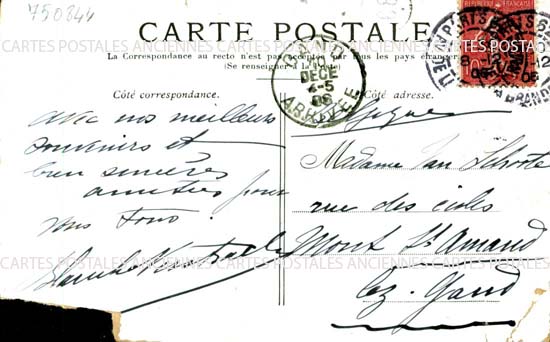 750844
CARTE POSTALE
La Correspondance au recto n'est pas acceptée par tous les pays étrangers
(Se renseigner à la Poste)
Côté correspondance.
Côté adresse.
DECE
4-5
ARRIVEE
CARTES POSTALES ANCIENNES CARTES POSTALES ANCIENNES CARTES POSTALES
avec nos meilleurs
souvenirs et
bien sincères
amitiés pour
vous Tous!
Blanche
Madame Van
rue des écoles
Mont St Amand
lez-Gand
CARTES POSTALES ANCIENNES CARTES POSTALES ANCIENNES CARTES POSTALES